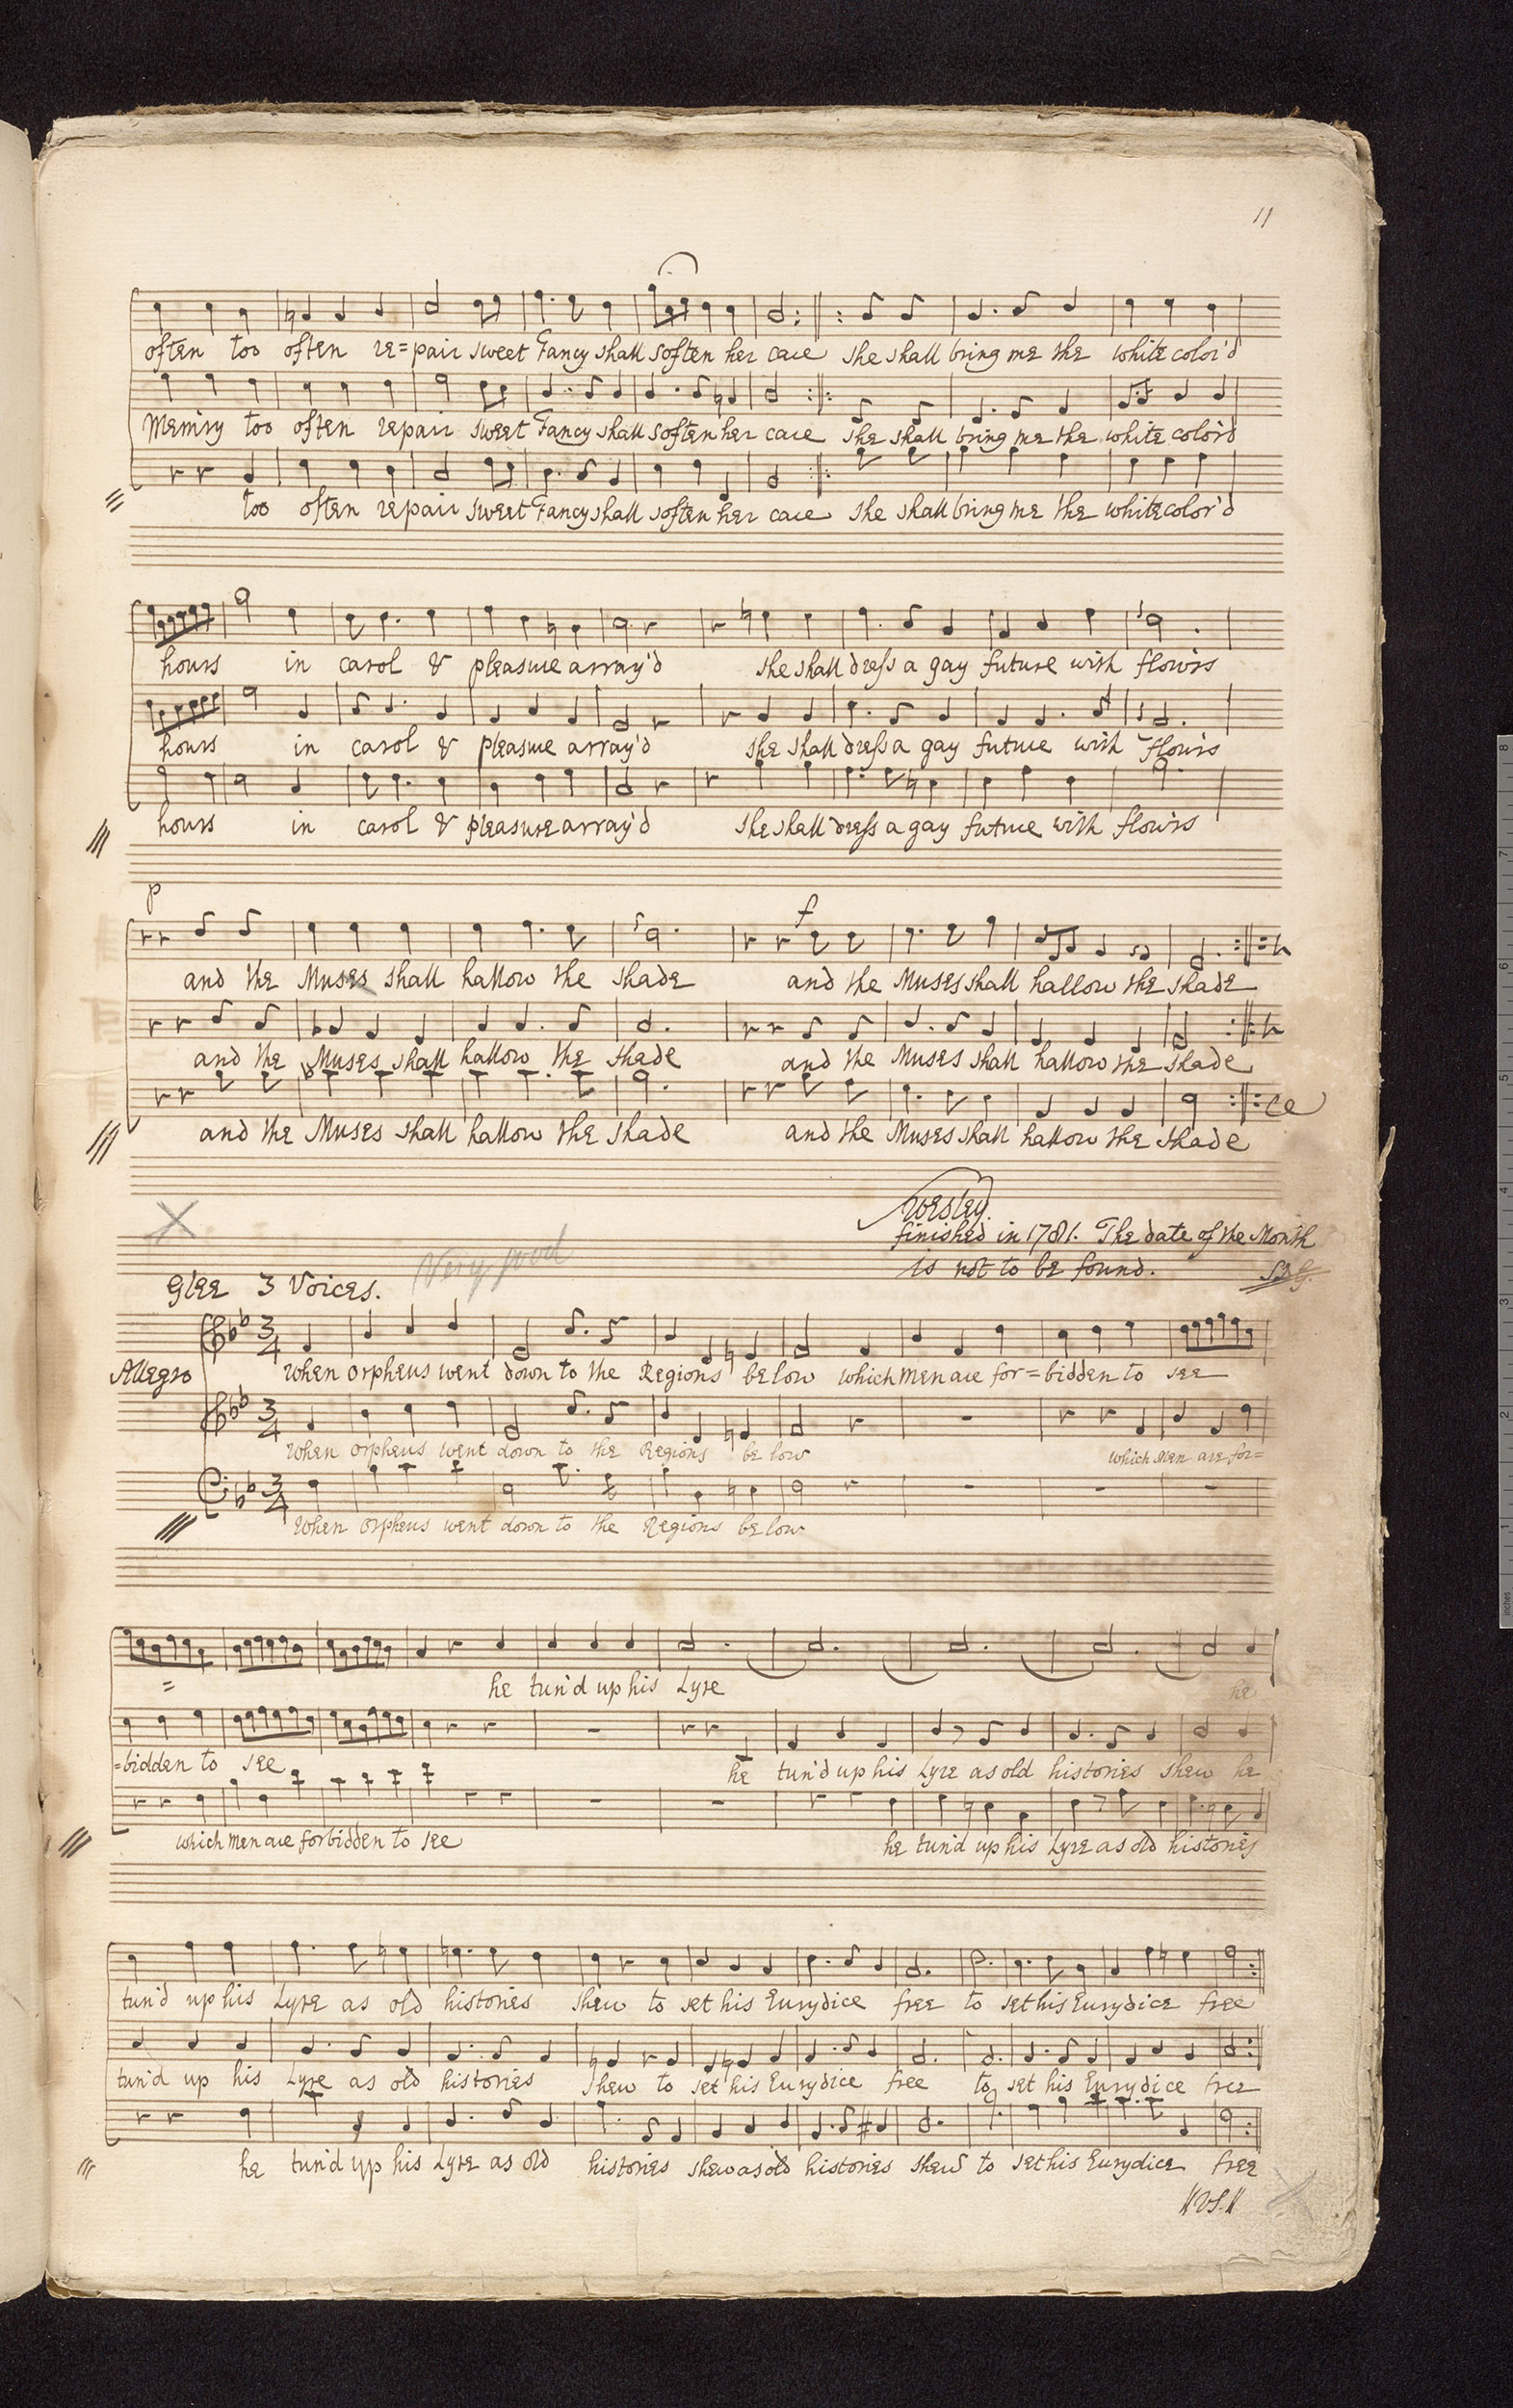 11
often too often re=pair sweet Fancy shall soften her care she shall bring me the white color'd
Mem'ry too often repair sweet Fancy shall soften her care she shall bring me the white color'd
too often repair sweet Fancy shall soften her care she shall bring me the white color'd
hours in carol & pleasure array'd she shall dress a gay future with flow'rs
hours in carol & pleasure array'd she shall dress a gay future with flow'rs
hours in carol & pleasure array'd she shall dress a gay future with flow'rs
p f
and the Muses shall hallow the shade and the Muses shall hallow the shade
and the Muses shall hallow the shade and the Muses shall hallow the shade
and the Muses shall hallow the shade and the Muses shall hallow the shade
Wesley.
finished in 1781. The date of the Month
is not to be found.
Very good
Glee 3 Voices.
Allegro
3/4 When Orpheus went down to the Regions below which men are for=bidden to see
3/4 When Orpheus went down to the Regions below which Men are for=
3/4 When Orpheus went down to the Regions below
= he tun'd up his Lyre he
=bidden to see he tun'd up his Lyre as old histories shew he
which men are forbidden to see he tun'd up his Lyre as old histories
tun'd up his Lyre as old histories shew to set his Eurydice free to set his Eurydice free
tun'd up his Lyre as old histories shew to set his Eurydice free to set his Eurydice free
he tun'd up his Lyre as old histories shew as old histories shew to set his Eurydice free
VS.